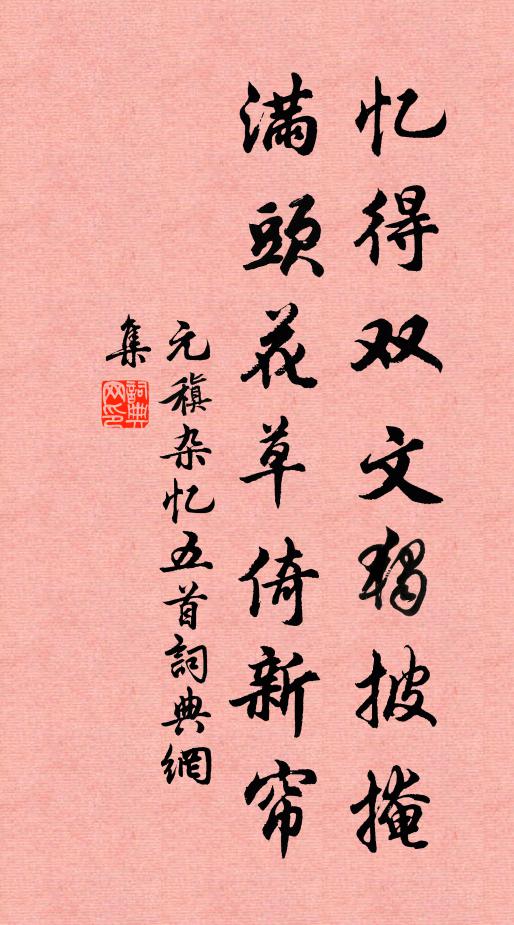 忆得双文独披掩
满頭花草倚新帘
元稹杂忆五首詞典網
集
詞典
网印